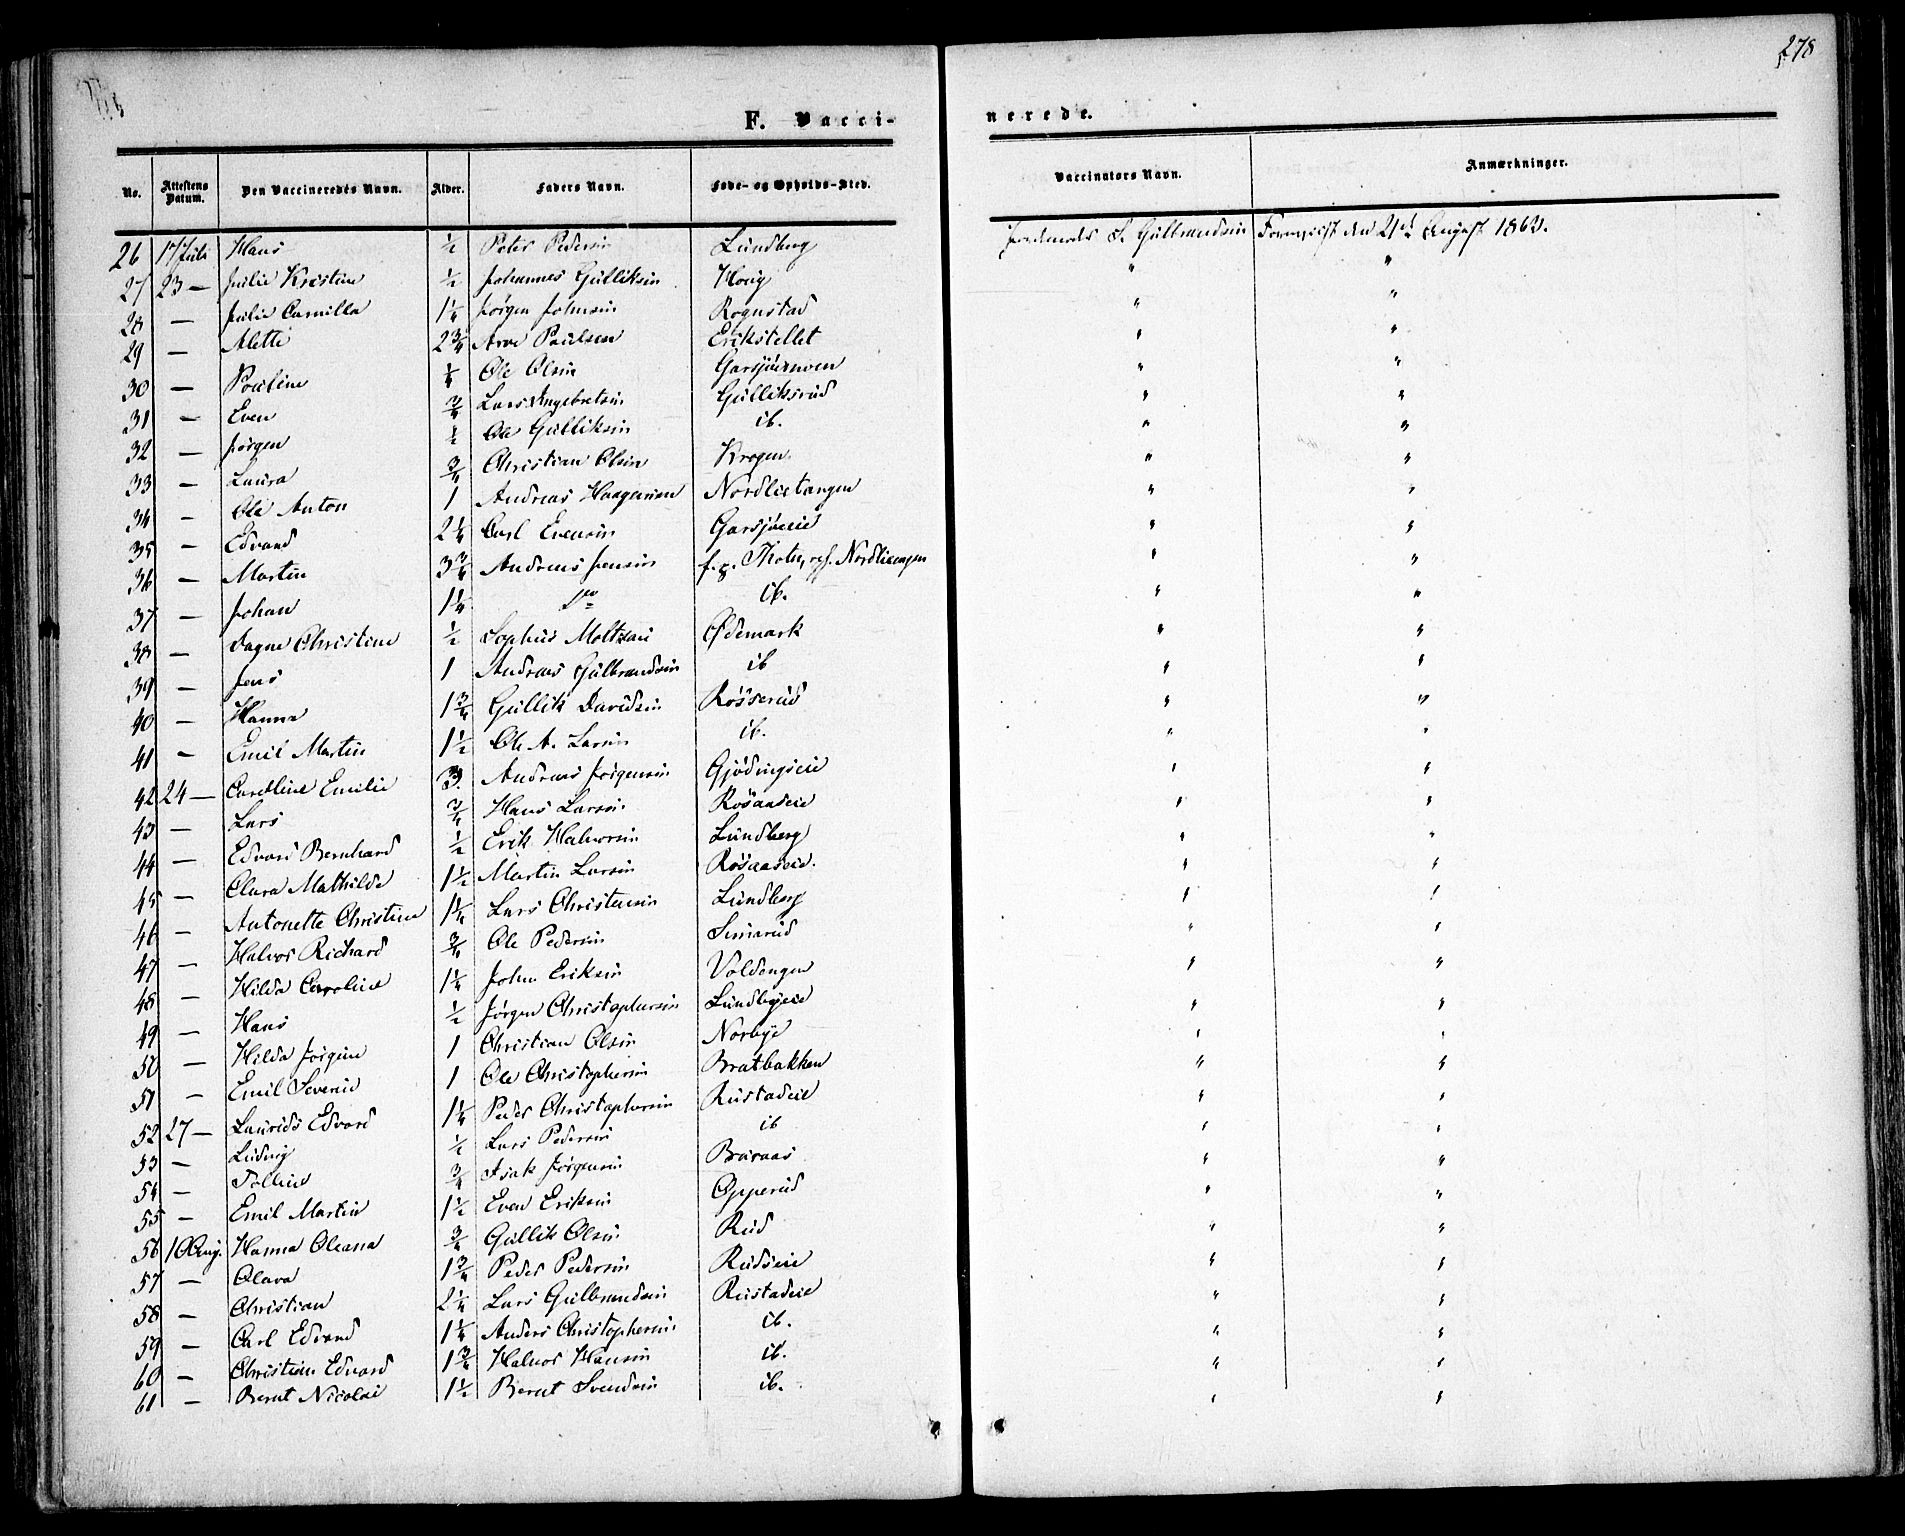 278
F. Vacci-
nerede.
No. Attestens Datum. Den Vaccineredes Navn. Alder. Faders Navn. Føde- og Opholds-Sted. Vaccinators Navn. Anmærkninger.
26 17/Juli Hans ½ Peter Pedersen Lundberg S. Gulbrandsen den 21de August 1863.
27 23 — Julie Kristine ½ Johannes Gulliksen Houg " "
28 — Julie Camilla 1¼ Jørgen Johnsen Rognstad " "
29 — Alette 2¾ Arve Paulsen Erikstellet " "
30 — Pauline ¼ Ole Olsen Garsjøenoen " "
31 — Even ¾ Lars Ingebretsen Gulliksrud " "
32 — Jørgen ½ Ole Gulliksen ib. " "
33 — Laura ¾ Christian Olsen Krogen " "
34 — Ole Anton 1 Andreas Haagensen Nordlietangen " "
35 — Edvard 2¼ Carl Evensen Garsjøeeie " "
36 — Martin 3¾ Andreas Jensen f. p. Thoten, opf. Nordlieengen " "
37 — Johan 1¼ do ib. " "
38 — Dagne Christine ½ Sophus Moltzau Ødemark " "
39 — Jens 1 Andreas Gulbrandsen ib " "
40 — Hanna 1¾ Gullik Davidsen Røsserud " "
41 — Emil Martin 1½ Ole A. Larsen ib. " "
42 24 — Caroline Emilie 3. Andreas Jørgensen Gjødingseie " "
43 — Lars ¾ Hans Larsen Rosaaseie " "
44 — Edvard Bernhard ½ Erik Halvorsen Lundberg " "
45 — Clara Mathilde 1½ Martin Larsen Rosaaseie. " "
46 — Antonette Christine 1¼ Lars Christensen Lundberg " "
47 — Halvor Richard ¾ Ole Pedersen Simarud " "
48 — Hilda Caroline 1¼ John Eriksen Voldengen " "
49 — Hans ½ Jørgen Christophersen Lundbyeie " "
50 — Hilda Jørgine 1 Christian Olsen Norbye " "
51 — Emil Severin 1 Ole Christophersen Bratbakken " "
52 27 — Laurids Edvard 1¼ Peder Christophersen Rustadeie " "
53 — Ludvig ½ Lars Pedersen ib " "
54 — Polline ¾ Isak Jørgensen Braraas " "
55 — Emil Martin 1½ Even Eriksen Opperud " "
56 10 Aug. Hanna Oleana ¾ Gullik Olsen Rud " "
57 — Olava 1¾ Peder Pedersen Rudseie " "
58 — Christian 2¼ Lars Gulbrandsen Rustadeie " "
59 — Carl Edvard 1¼ Anders Christophersen ib. " "
60 — Christian Edvard 1¾ Halvor Hansen ib. " "
61 — Bernt Nicolai 1½ Bernt Svendsen ib. " "